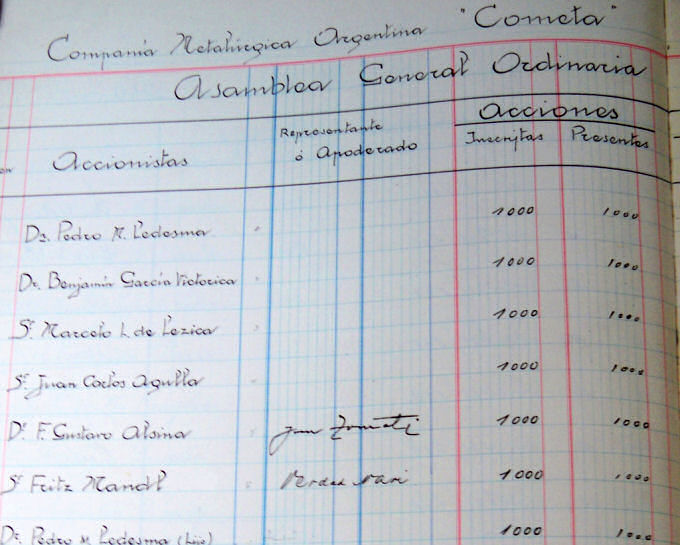 Compañía Metalúrgica Argentina "Cometa"
Asamblea General Ordinaria
Acciones
Accionistas Representante ó Apoderado Inscriptas Presentes
Dr. Pedro N. Ledesma " 1000 1000
Dr. Benjamín García Victorica " 1000 1000
Sr. Marcelo L. de Lezica " 1000 1000
Sr. Juan Carlos Agulla " 1000 1000
Dr. F. Gustavo Alsina 1000 1000
Sr. Fritz Mandl 1000 1000
Dr. Pedro N. Ledesma (hijo) 1000 1000